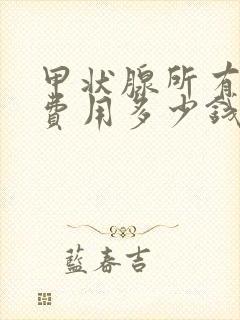 甲状腺所有
費用多少錢
藍春吉